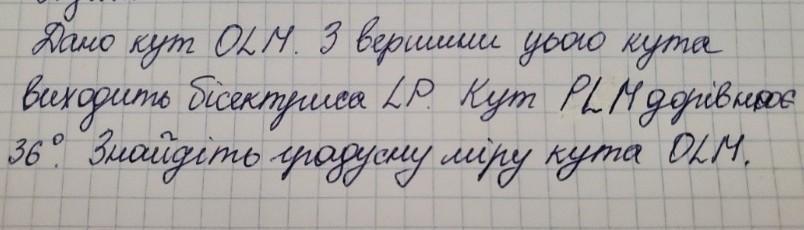 Дано кут OLM. З вершини цього кута
виходить бісектриса LP. Кут PLM дорівнює
36°. Знайдіть градусну міру кута OLM.